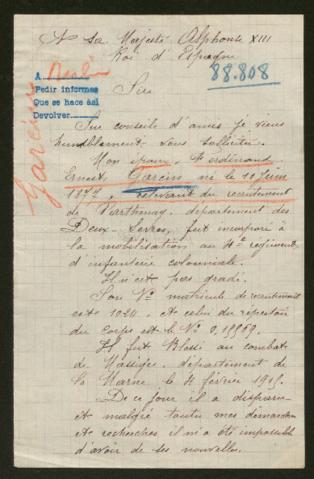 A Sa Majesté Alphonse XIII
Roi d'Espagne
88.808
A
Pedir informes
Que se hace así
Devolver
Garcin
Sire
Sur conseil d'amis je viens
humblement vous solliciter.
Mon époux, Ferdinand
Ernest Garcin né le 10 juin
1877, relevant du recrutement
de Parthenay, département des
Deux-Sèvres, fut incorporé à
la mobilisation au 4e régiment
d'infanterie coloniale.
Il n'est pas gradé.
Son No matricule de recrutement
est 1024. Et celui du répertoire
du Corps est le No 0,18969.
Il fut Blessé au combat
de Massiges, département de
la Marne le 4 février 1915.
De ce jour il a disparu
Et malgré toutes mes demandes
et recherches il m'a été impossible
d'avoir de ses nouvelles.